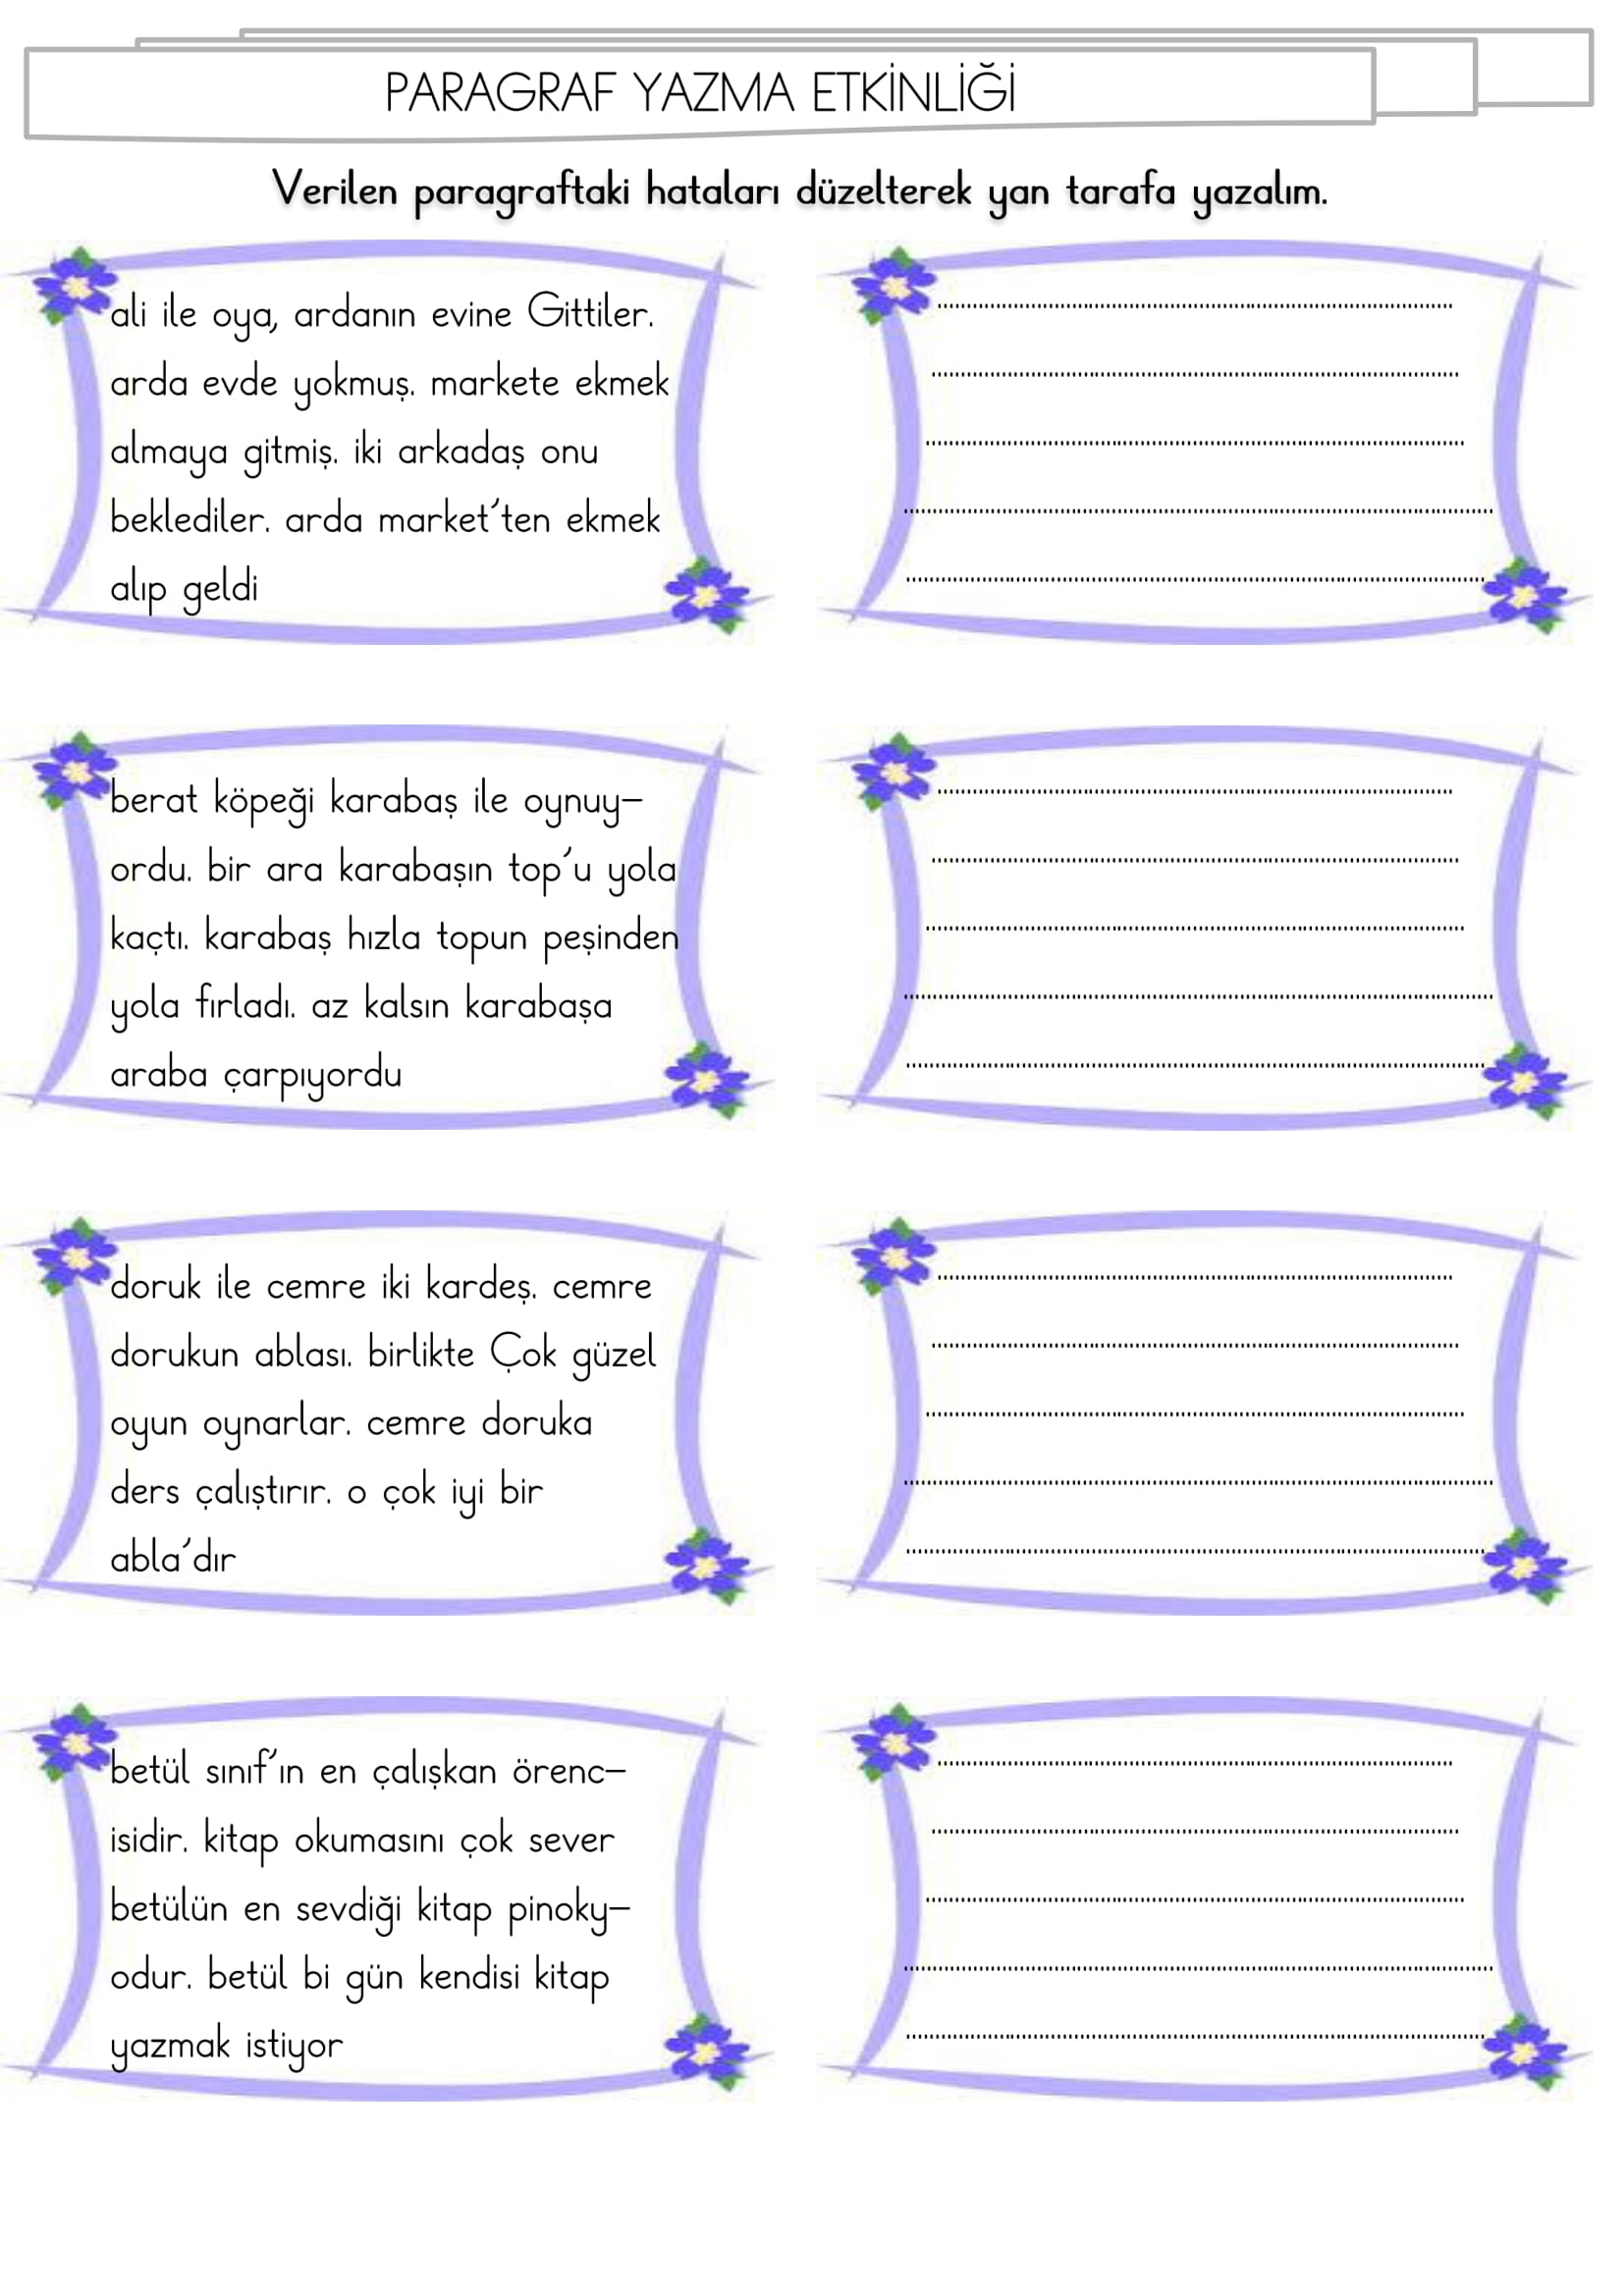 PARAGRAF YAZMA ETKİNLİĞİ
Verilen paragraftaki hataları düzelterek yan tarafa yazalım.
ali ile oya, ardanın evine Gittiler.
arda evde yokmuş. markete ekmek
almaya gitmiş. iki arkadaş onu
beklediler. arda market'ten ekmek
alıp geldi
berat köpeği karabaş ile oynuy-
ordu. bir ara karabaşın top'u yola
kaçtı. karabaş hızla topun peşinden
yola fırladı. az kalsın karabaşa
araba çarpıyordu
doruk ile cemre iki kardeş. cemre
dorukun ablası. birlikte Çok güzel
oyun oynarlar. cemre doruka
ders çalıştırır. o çok iyi bir
abla'dır
betül sınıf'ın en çalışkan örenc-
isidir. kitap okumasını çok sever
betülün en sevdiği kitap pinoky-
odur. betül bi gün kendisi kitap
yazmak istiyor